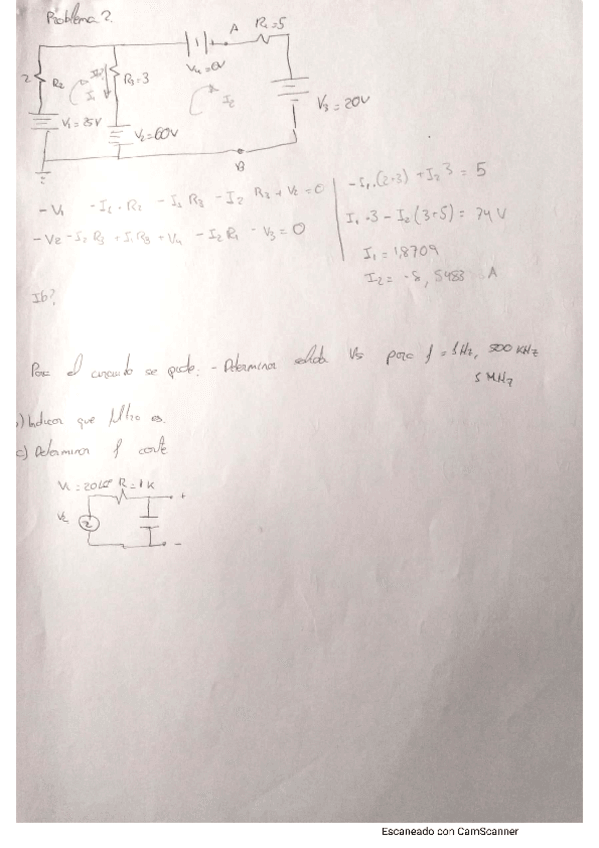 Problema 2.
A R₁=5
2 R2 I1 R3=3 V4=6V I2 V3=20V
V2=60V
B
-V1 -I1·R2 - I1 R3 - I2 R3 + V2=0
-I1·(2+3) + I2 3 = 5
-V2 -I2 R3 + I1 R3 + V4 - I2 R1 - V3=0
I1·3 - I2(3+5)= 74 V
I1=1,8709
I2= -8,5483 A
Ib?
el circuito se pide: - Determinar salida Vs para f=1Hz, 500 KHz
5 MHz
b) Indicar que filtro es.
c) Determinar f corte
R=1K
+
-
Escaneado con CamScanner